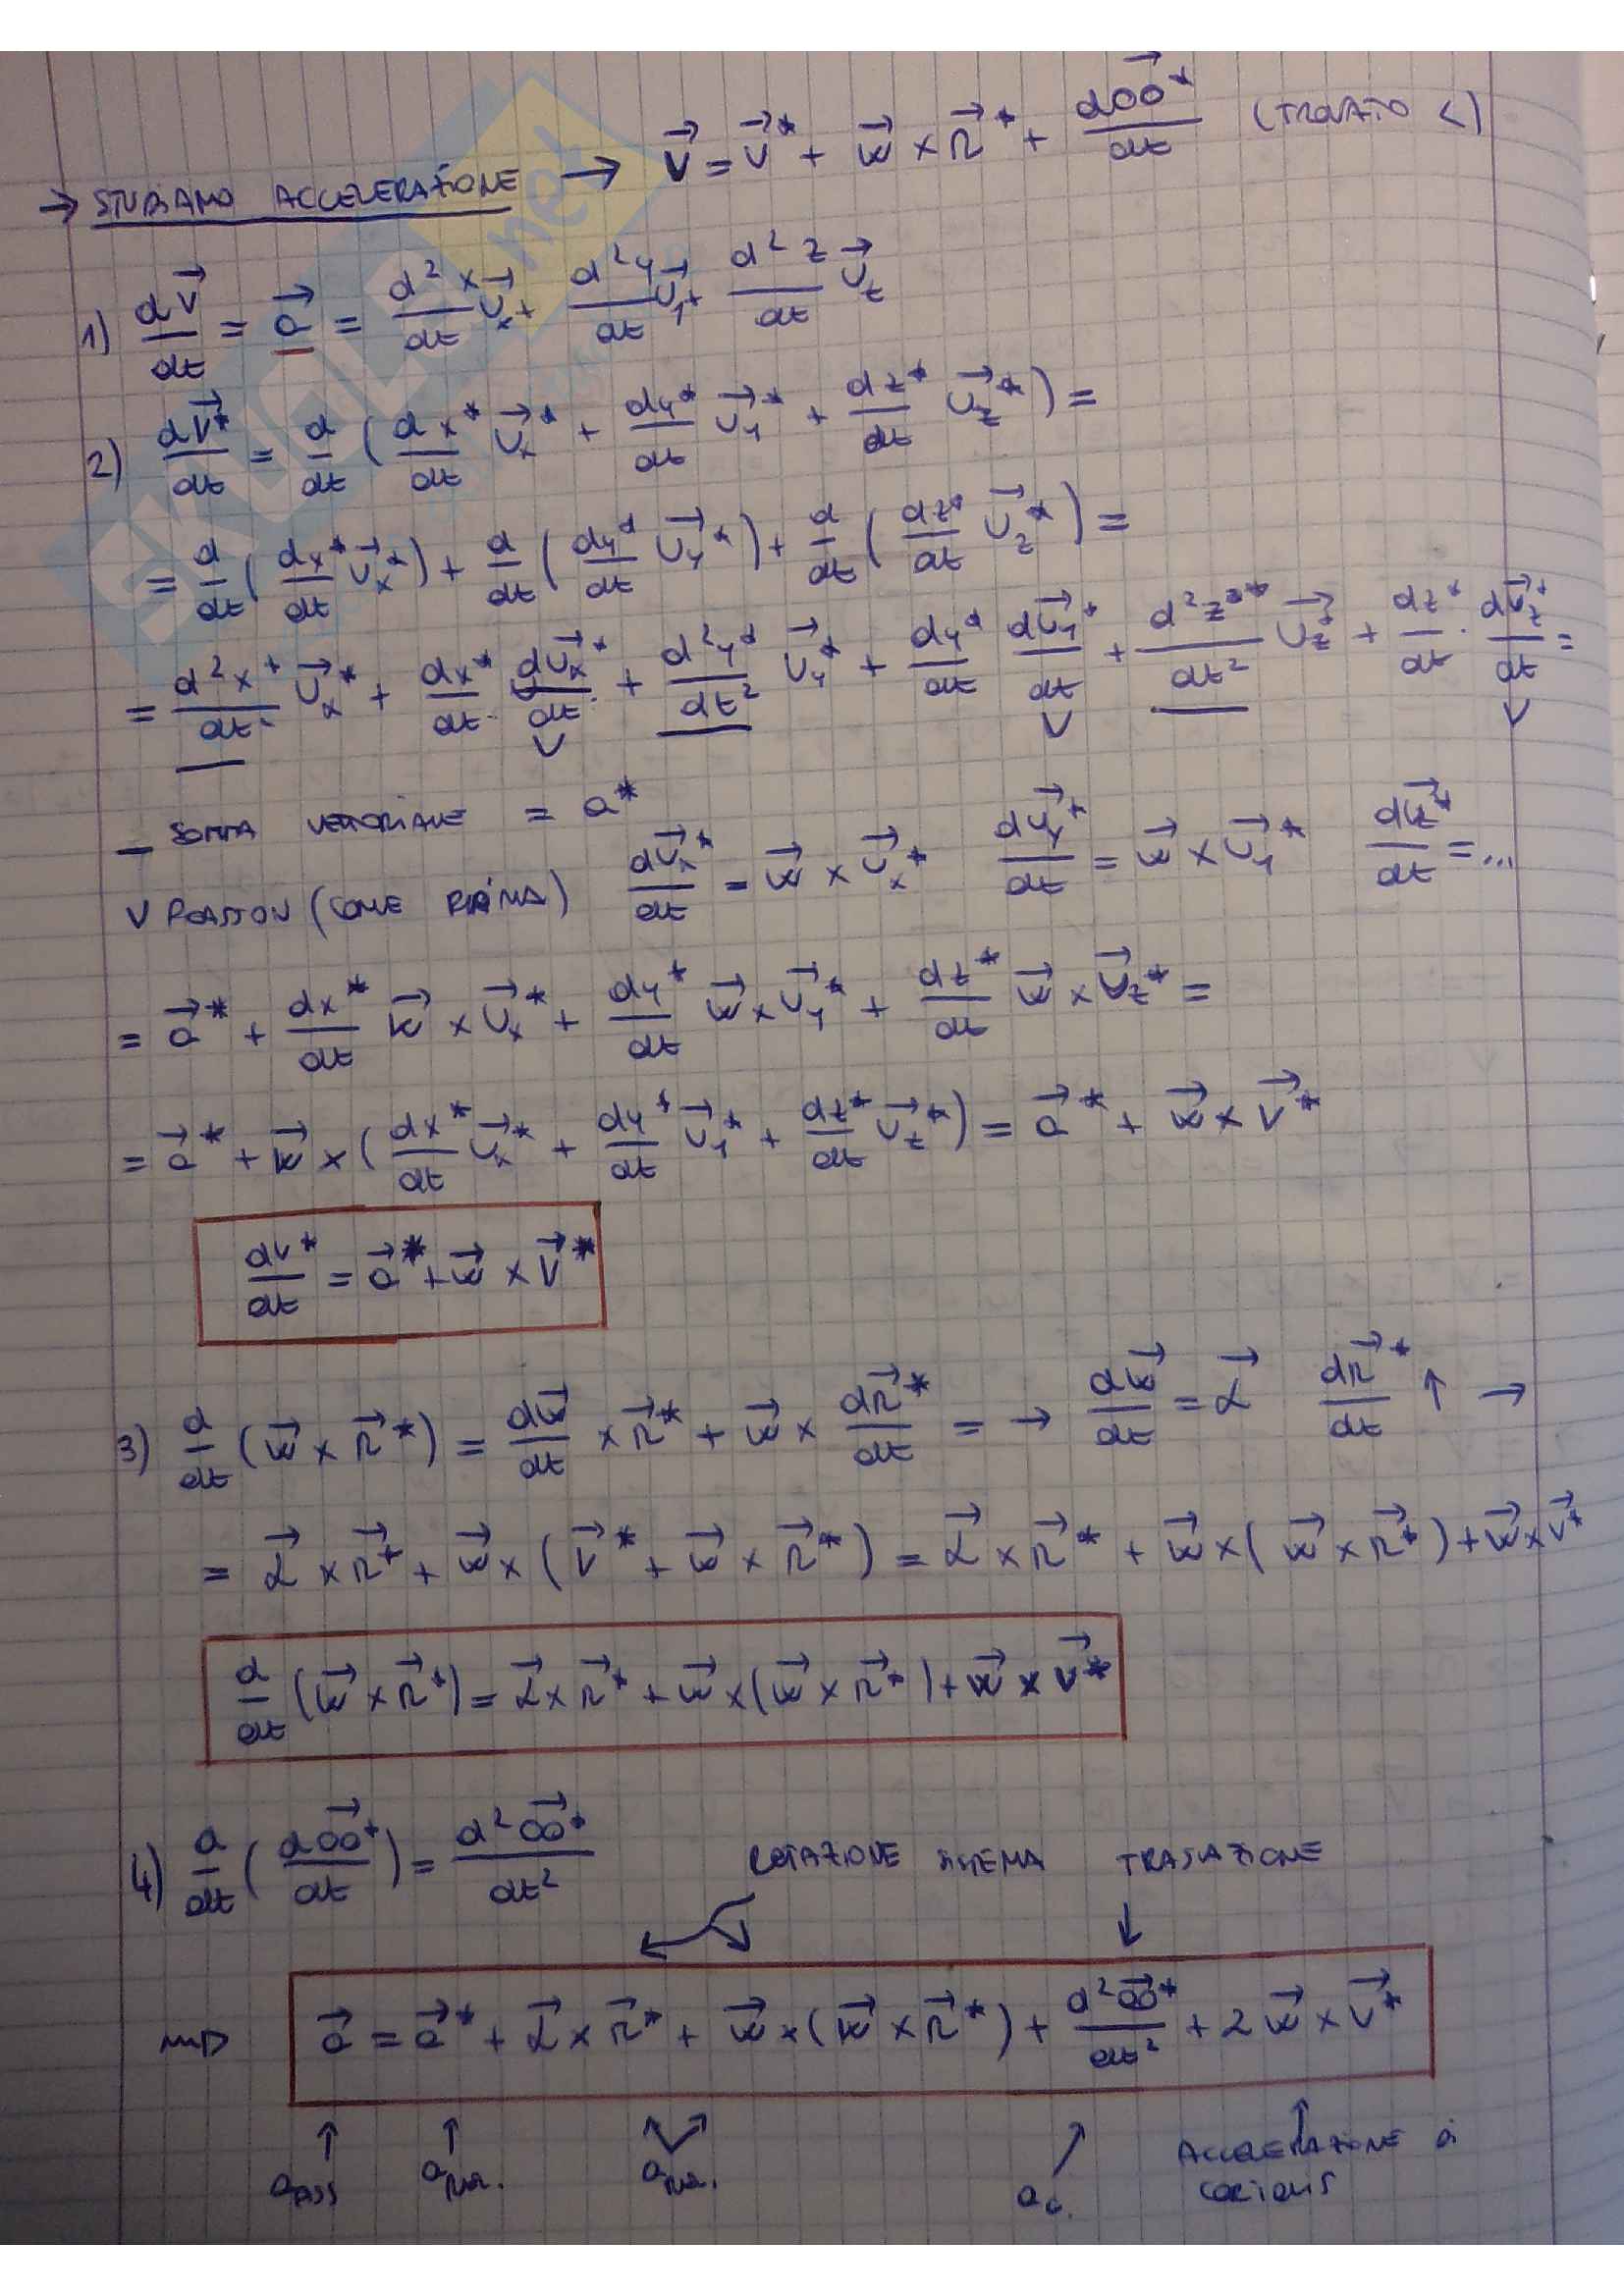 → STUDIAMO ACCELERAZIONE → v⃗ = v⃗* + w⃗ × r⃗* + dOO⃗*/dt (TROVATO <)
1) dv⃗/dt = a⃗ = d²x/dt u⃗x + d²y/dt u⃗y + d²z/dt u⃗z
2) dv⃗*/dt = d/dt (dx*/dt u⃗x* + dy*/dt u⃗y* + dz*/dt u⃗z*) =
= d/dt (dx*/dt u⃗x*) + d/dt (dy*/dt u⃗y*) + d/dt (dz*/dt u⃗z*) =
= d²x*/dt² u⃗x* + dx*/dt · du⃗x*/dt + d²y*/dt² u⃗y* + dy*/dt du⃗y*/dt + d²z*/dt² u⃗z* + dz*/dt · du⃗z*/dt =
V V V
— SOMMA VETTORIALE = a*
V POISSON (COME PRIMA) du⃗x*/dt = w⃗ × u⃗x* du⃗y*/dt = w⃗ × u⃗y* du⃗z*/dt = ...
= a⃗* + dx*/dt w⃗ × u⃗x* + dy*/dt w⃗ × u⃗y* + dz*/dt w⃗ × u⃗z* =
= a⃗* + w⃗ × (dx*/dt u⃗x* + dy*/dt u⃗y* + dz*/dt u⃗z*) = a⃗* + w⃗ × v⃗*
dv*/dt = a⃗* + w⃗ × v⃗*
3) d/dt (w⃗ × r⃗*) = dw⃗/dt × r⃗* + w⃗ × dr⃗*/dt = → dw⃗/dt = α⃗ dr⃗*/dt ↑ →
= α⃗ × r⃗* + w⃗ × (v⃗* + w⃗ × r⃗*) = α⃗ × r⃗* + w⃗ × (w⃗ × r⃗*) + w⃗ × v⃗*
d/dt (w⃗ × r⃗*) = α⃗ × r⃗* + w⃗ × (w⃗ × r⃗*) + w⃗ × v⃗*
4) d/dt (dOO⃗*/dt) = d²OO⃗*/dt² ROTAZIONE SISTEMA TRASLAZIONE
a⃗ = a⃗* + α⃗ × r⃗* + w⃗ × (w⃗ × r⃗*) + d²OO⃗*/dt² + 2w⃗ × v⃗*
aASS ACCELERAZIONE di
CORIOLIS